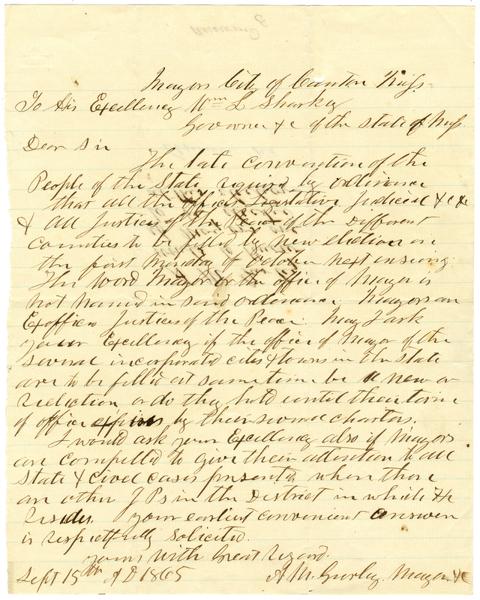 Mayors City of Canton Miss.
To His Excellency Wm L Sharkey
Governer &c of the State of Miss.
Dear Sir
The late convention of the
People of the State required by ordinance
that all the offices Legislative Judicial &c &c
& all Justices of the of the Different
Counties to be filled by new election on
the first Monday of October next ensuing.
The word Mayor or the office of Mayor is
not named in said ordinance. Mayors are
Exofficio Justices of the Peace. May I ask
your Excellency if the office of Mayor of the
several incorporated cities & towns in the state
are to be filled at same time by a new or
reelection or do they hold until their term
of office expires by their several charters.
I would ask your Excellency also if Mayors
are compelled to give their attention to all
State & civil cases presented when there
are other JPs in the District in which He
resides. Your earliest convenient answer
is respectfully solicited.
Yours with Great Regard.
Sept 15th AD 1865 A. M. Gurley Mayor &c